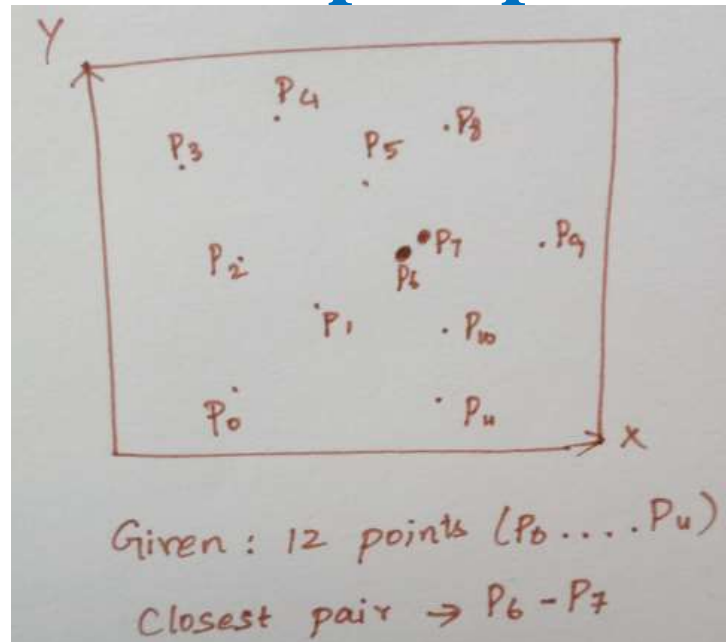 Y
P4
P8
P3
P5
P7
P9
P2
P6
P1
P10
P0
P11
X
Given : 12 points (P0....P11)
Closest pair → P6 - P7